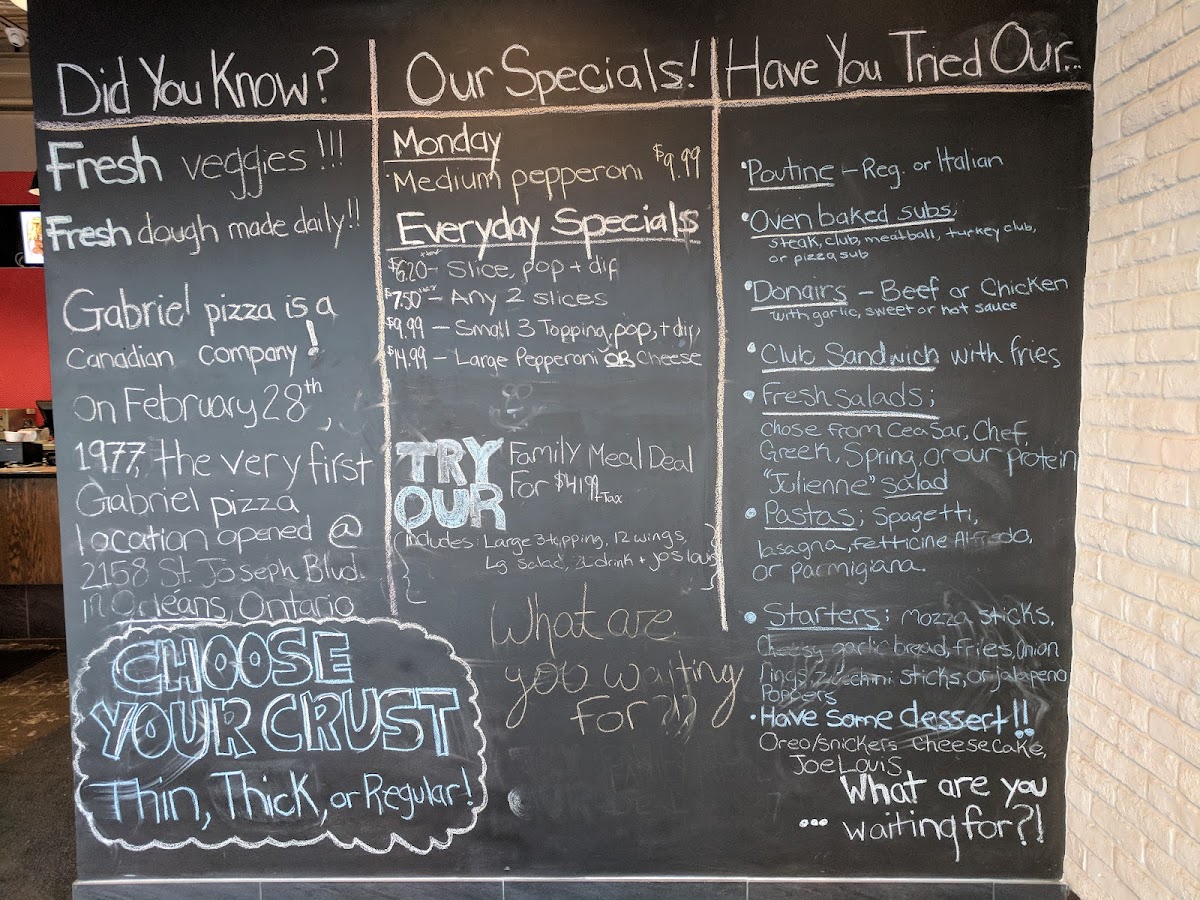 Did You Know?
Fresh veggies!!!
Fresh dough made daily!!
Gabriel pizza is a
Canadian company!
on February 28th,
1977, the very first
Gabriel pizza
location opened @
2158 St. Joseph Blvd.
in Orléans, Ontario
CHOOSE
YOUR CRUST
Thin, Thick, or Regular!
Our Specials!
Monday
Medium pepperoni $9.99
Everyday Specials
$6.20 - Slice, pop + dip
$7.50 - Any 2 slices
$9.99 - Small 3 Topping, pop, + dip
$14.99 - Large Pepperoni OR Cheese
TRY
OUR
Family Meal Deal
For $41.99 +Tax
(Includes: Large 3-topping, 12 wings,
Lg Salad, 2L drink + Jos Louis)
What are
you waiting
for?!)
Have You Tried Our...
• Poutine - Reg. or Italian
• Oven baked subs;
steak, club, meatball, turkey club,
or pizza sub
• Donairs - Beef or Chicken
with garlic, sweet or hot sauce
• Club Sandwich with fries
• Fresh salads;
chose from Ceasar, Chef,
Greek, Spring, or our protein
"Julienne" salad
• Pastas; Spagetti,
lasagna, fetticine Alfredo,
or parmigiana.
• Starters; mozza sticks,
Cheesy garlic bread, fries, Onion
rings, Zucchni sticks, or jalapeno
Poppers
• Have some dessert!!
Oreo/snickers cheesecake,
Joe Louis
What are you
... waiting for?!